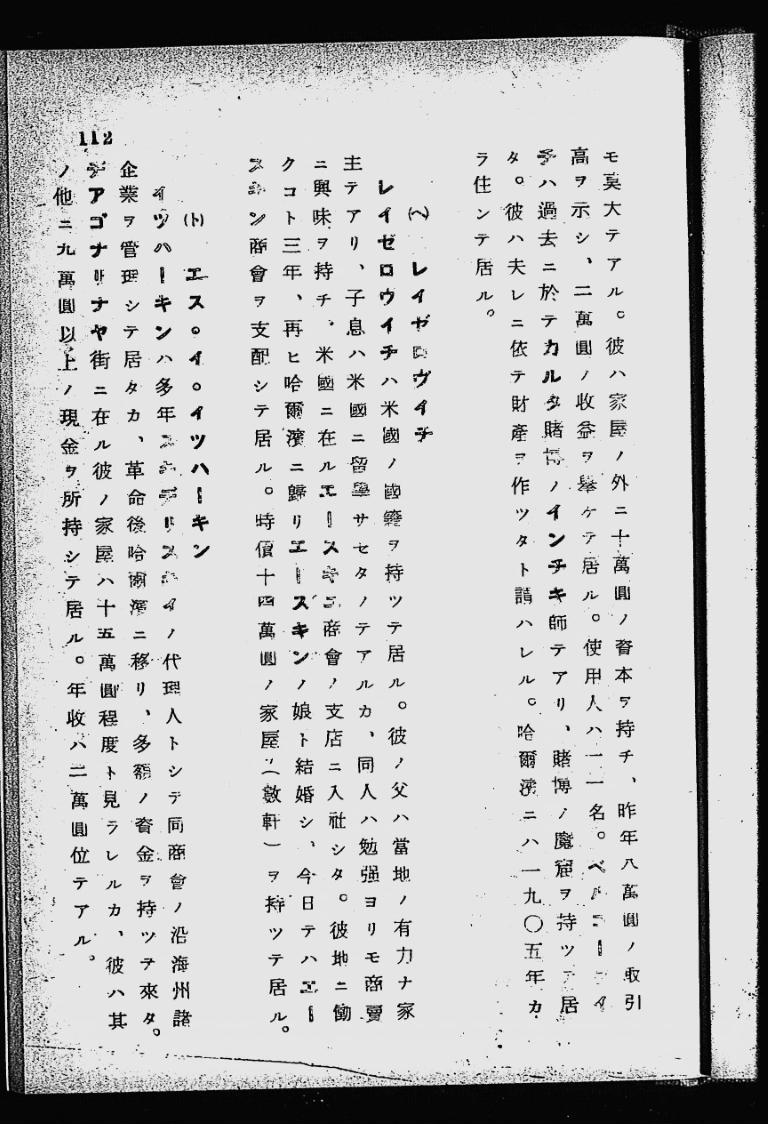 モ莫大テアル。彼ハ家屋ノ外ニ十萬圓ノ資本ヲ持チ、昨年八萬圓ノ取引
高ヲ示シ、二萬圓ノ收益ヲ擧ケテ居ル。使用人ハ一一名。
チハ過去ニ於テカルタ賭博ノインチキ師テアリ、賭博ノ魔窟ヲ持ツテ居
タ。彼ハ夫レニ依テ財産ヲ作ツタト謂ハレル。哈爾濱ニハ一九〇五年カ
ラ住ンテ居ル。
(ヘ) レイゼロヴイチ
レイゼロウイチハ米國ノ國籍ヲ持ツテ居ル。彼ノ父ハ當地ノ有力ナ家
主テアリ、子息ハ米國ニ留學サセタノテアルカ、同人ハ勉强ヨリモ商賣
ニ興味ヲ持チ、米國ニ在ルエースキン商會ノ支店ニ入社シタ。彼地ニ働
クコト三年、再ヒ哈爾濱ニ歸リエースキンノ娘ト結婚シ、今日テハエー
スキン商會ヲ支配シテ居ル。時價十四萬圓ノ家屋(數軒)ヲ持ツテ居ル。
(ト) エス。イ。イツハーキン
イツハーキンハ多年ノ代理人トシテ同商會ノ沿海州諸
企業ヲ管理シテ居タカ、革命後哈爾濱ニ移リ、多額ノ資金ヲ持ツテ來タ。
デアゴナリナヤ街ニ在ル彼ノ家屋ハ十五萬圓程度ト見ラレルカ、彼ハ其
ノ他ニ九萬圓以上ノ現金ヲ所持シテ居ル。年收ハ二萬圓位テアル。
112